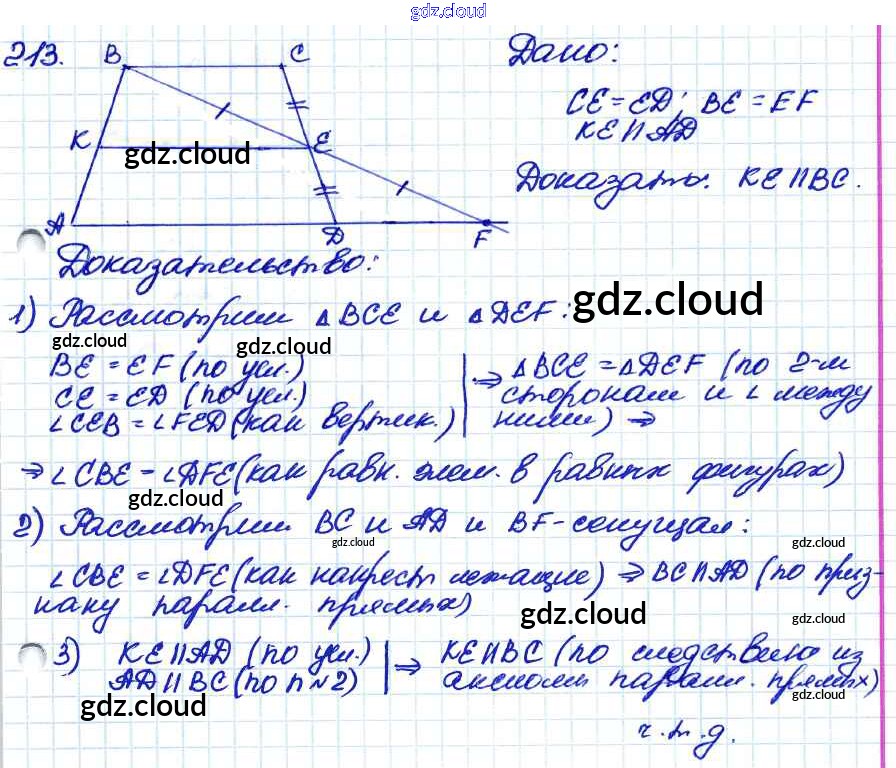 gdz.cloud
213.
B
C
Дано:
CE = ED; BE = EF
KE || AD
K
E
gdz.cloud
Доказать: KE || BC.
A
D
F
Доказательство:
1) Рассмотрим △BCE и △DEF:
gdz.cloud
gdz.cloud
gdz.cloud
BE = EF (по усл.)
CE = ED (по усл.)
∠CEB = ∠FED (как вертик.)
⇒ △BCE = △DEF (по 2-м
сторонам и ∠ между
ними) ⇒
⇒ ∠CBE = ∠DFE (как равн. элем. в равных фигурах)
gdz.cloud
2) Рассмотрим BC и AD и BF - секущая:
gdz.cloud
gdz.cloud
∠CBE = ∠DFE (как накрест лежащие) ⇒ BC || AD (по приз-
наку паралл. прямых)
gdz.cloud
gdz.cloud
3) KE || AD (по усл.)
AD || BC (по п №2)
⇒ KE || BC (по следствию из
аксиомы паралл. прямых)
gdz.cloud
gdz.cloud
ч.т.д.